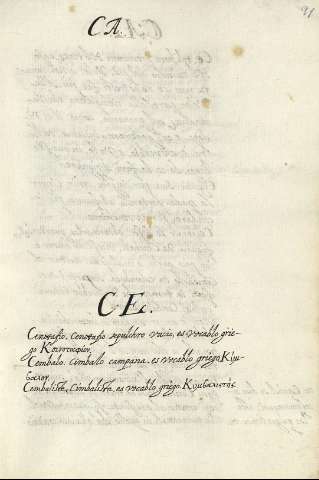 91
CA.
CE.
Cenotafio. Cenotafio sepulchro vacio, es vocablo grie-
go
Cembalo. Cimbalo campana. es vocablo griego Κυμ-
βαλον.
Cembalista, Cimbalista, es vocablo griego Κυμβαλιστος